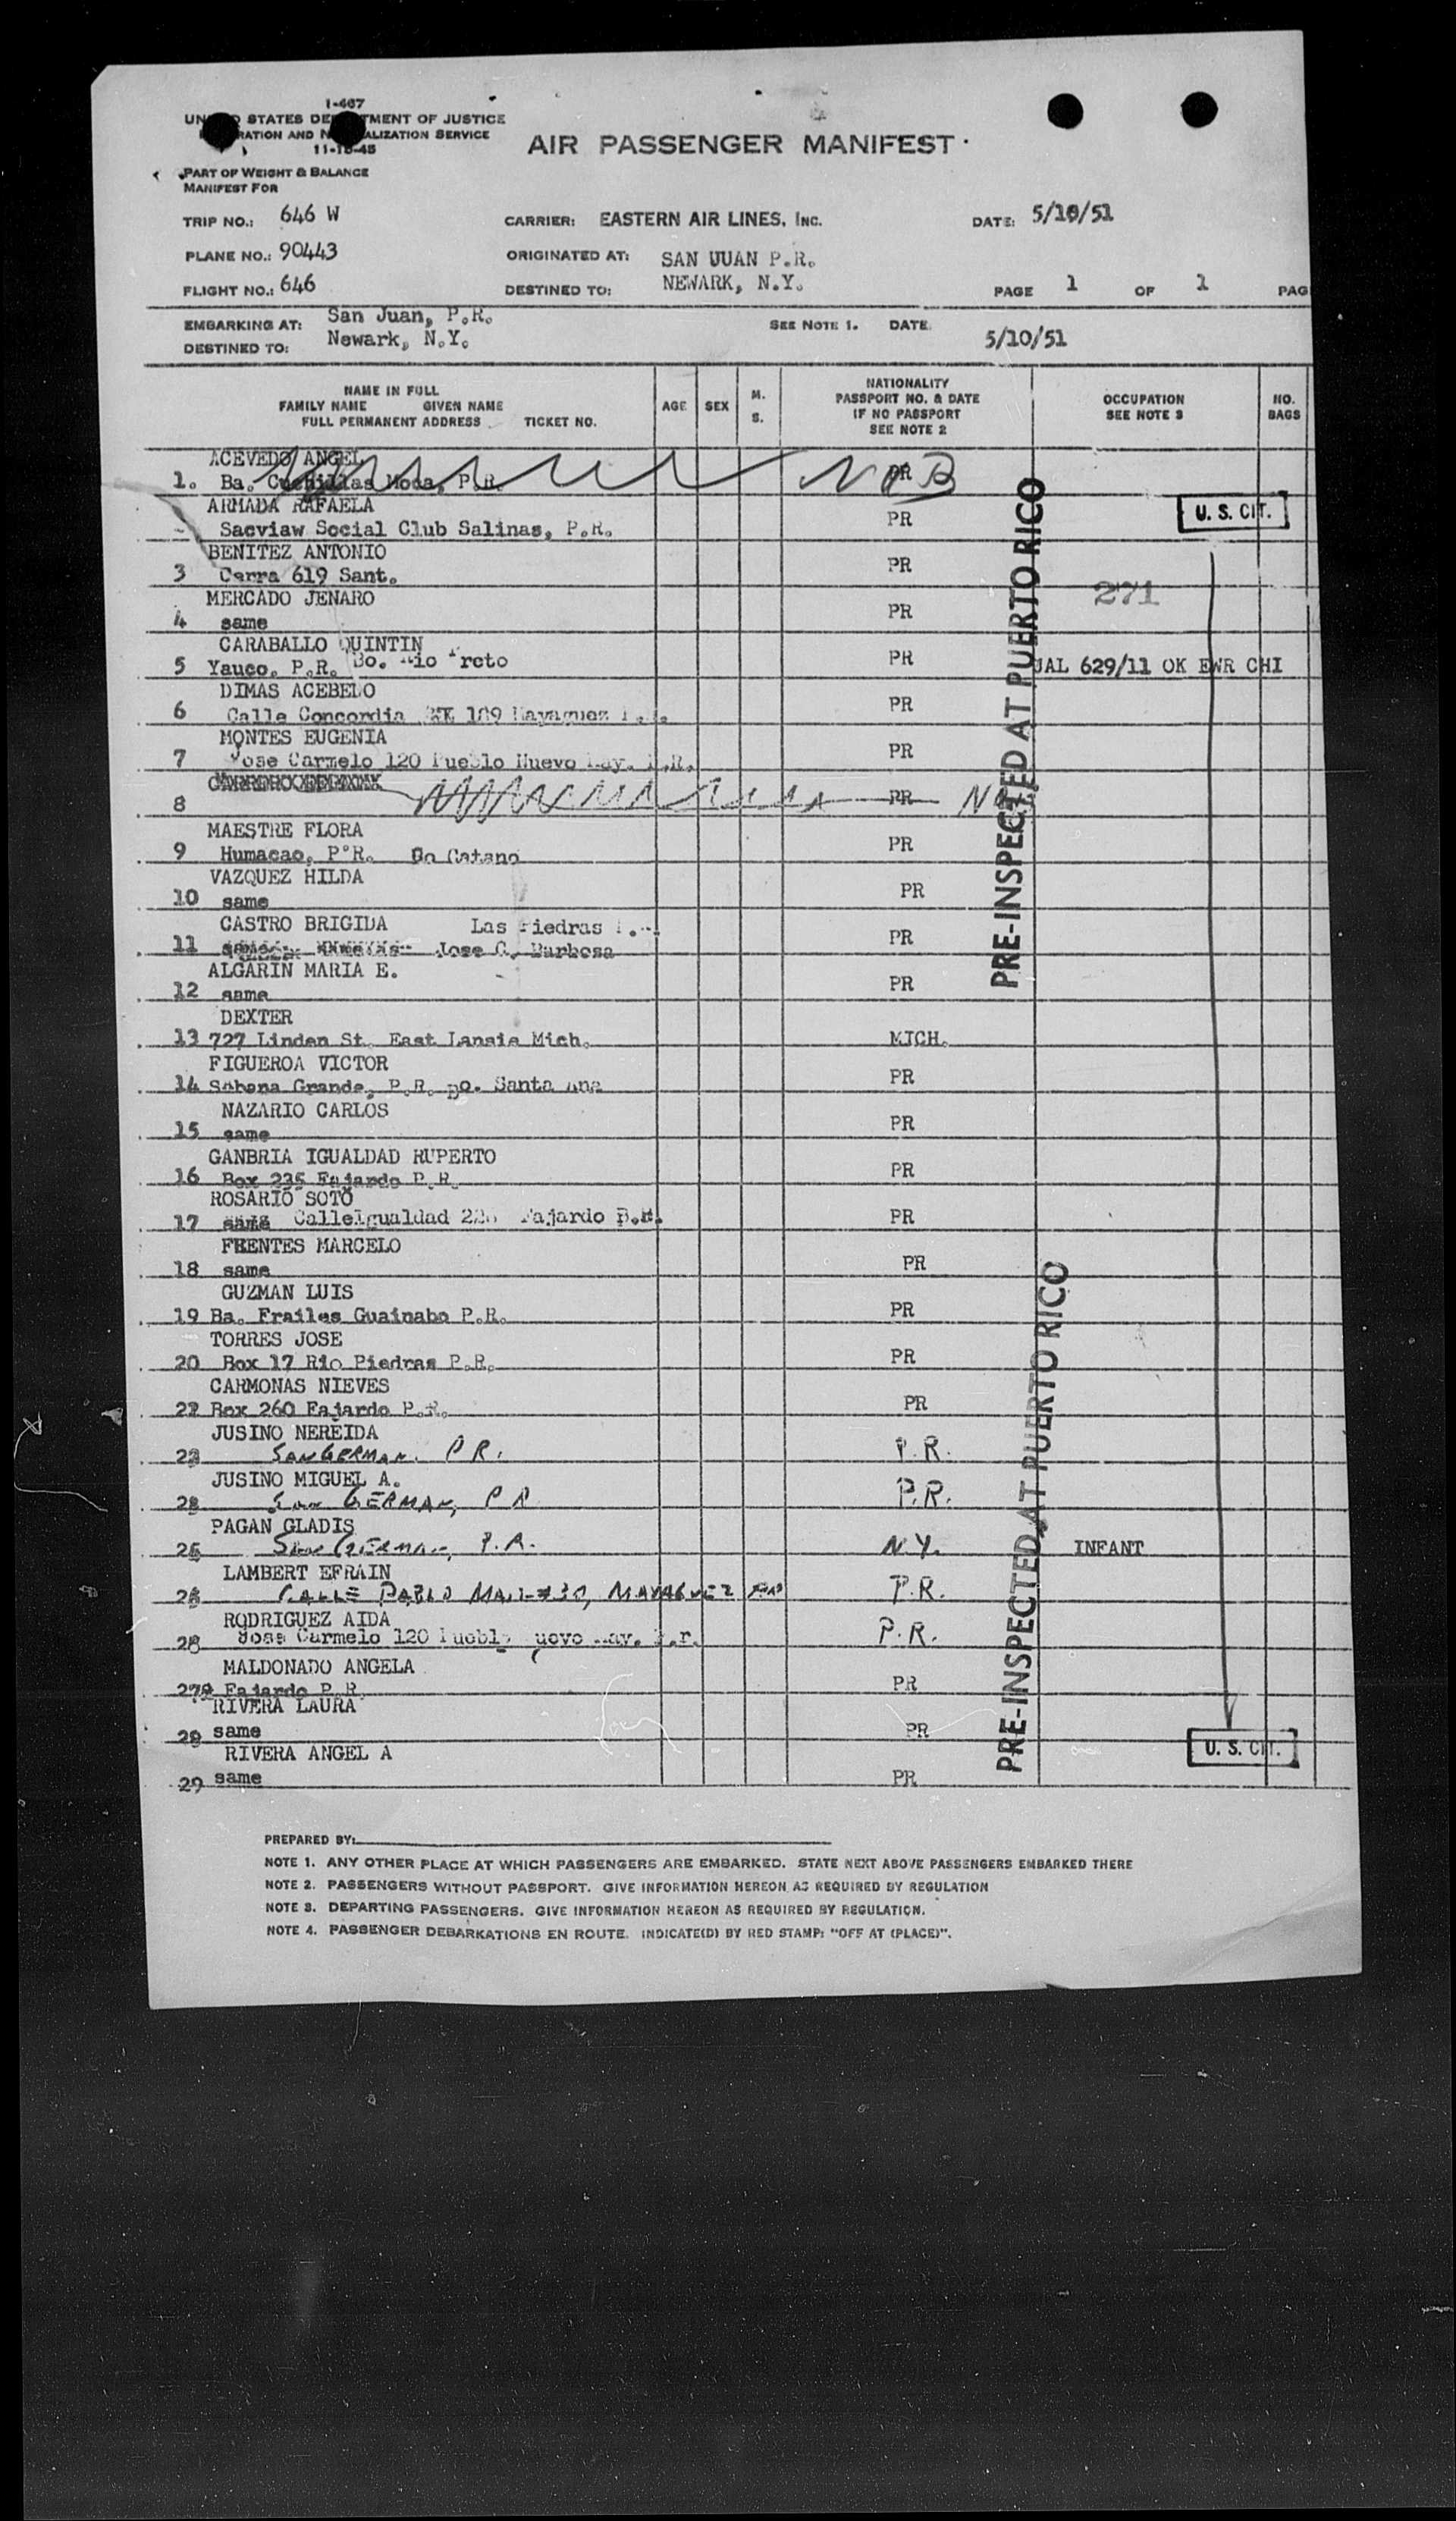 I-467
UNITED STATES DEPARTMENT OF JUSTICE
IMMIGRATION AND NATURALIZATION SERVICE
11-15-45
AIR PASSENGER MANIFEST
PART OF WEIGHT & BALANCE
MANIFEST FOR
TRIP NO.: 646 W CARRIER: EASTERN AIR LINES, INC. DATE: 5/10/51
PLANE NO.: 90443 ORIGINATED AT: SAN UUAN P.R.
FLIGHT NO.: 646 DESTINED TO: NEWARK, N.Y. PAGE 1 OF 1 PAG
EMBARKING AT: San Juan, P.R. SEE NOTE 1. DATE
DESTINED TO: Newark, N.Y. 5/10/51
NAME IN FULL
FAMILY NAME GIVEN NAME
FULL PERMANENT ADDRESS TICKET NO.
AGE
SEX
M.
S.
NATIONALITY
PASSPORT NO. & DATE
IF NO PASSPORT
SEE NOTE 2
OCCUPATION
SEE NOTE 3
NO.
BAGS
ACEVEDO ANGEL
1. Ba. Moca, P.R. PR
ARMADA RAFAELA
Sacviaw Social Club Salinas, P.R. PR U. S. CIT.
BENITEZ ANTONIO
3 Cerra 619 Sant. PR
271
MERCADO JENARO
4 same PR
CARABALLO QUINTIN
5 Yauco, P.R. Bo. PR UAL 629/11 OK EWR CHI
DIMAS ACEBEDO
6 Calle Concordia 109 Mayaguez PR
MONTES EUGENIA
7 Jose Carmelo 120 Pueblo Nuevo May. P.R. PR
8 PR
MAESTRE FLORA
9 Humacao, P.R. Bo Catano PR
VAZQUEZ HILDA
10 same PR
CASTRO BRIGIDA Las Piedras
11 Jose C. Barbosa PR
ALGARIN MARIA E.
12 same PR
DEXTER
13 727 Linden St. East Lansie Mich. MICH.
FIGUEROA VICTOR
14 Sabana Grande, P.R. Bo. Santa Ana PR
NAZARIO CARLOS
15 same PR
GANBRIA IGUALDAD RUPERTO
16 Box 235 Fajardo P.R. PR
ROSARIO SOTO
17 same CalleIgualdad Fajardo P.R. PR
FUENTES MARCELO
18 same PR
GUZMAN LUIS
19 Ba. Frailes Guainabo P.R. PR
TORRES JOSE
20 Box 17 Rio Piedras P.R. PR
CARMONAS NIEVES
Box 260 Fajardo P.R. PR
JUSINO NEREIDA
SAN GERMAN. P R. P.R.
JUSINO MIGUEL A.
SAN GERMAN, P R P.R.
PAGAN GLADIS
SAN GERMAN, P.R. N.Y. INFANT
LAMBERT EFRAIN
CALLE PABLO MAYAGUEZ P.R.
RODRIGUEZ AIDA
Jose Carmelo 120 Pueblo Nuevo May. P.r. P.R.
MALDONADO ANGELA
Fajardo P.R. PR
RIVERA LAURA
same PR
RIVERA ANGEL A
29 same PR
U. S. CIT.
PRE-INSPECTED AT PUERTO RICO
PRE-INSPECTED AT PUERTO RICO
PREPARED BY:
NOTE 1. ANY OTHER PLACE AT WHICH PASSENGERS ARE EMBARKED. STATE NEXT ABOVE PASSENGERS EMBARKED THERE
NOTE 2. PASSENGERS WITHOUT PASSPORT. GIVE INFORMATION HEREON AS REQUIRED BY REGULATION
NOTE 3. DEPARTING PASSENGERS. GIVE INFORMATION HEREON AS REQUIRED BY REGULATION.
NOTE 4. PASSENGER DEBARKATIONS EN ROUTE. INDICATE(D) BY RED STAMP: "OFF AT (PLACE)".